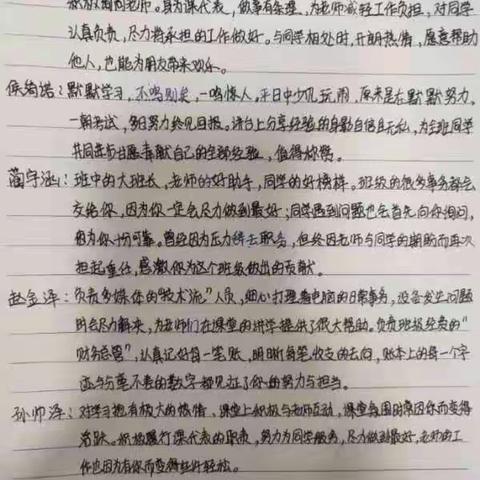 积极询问老师。身为课代表，做事有条理，为老师减轻工作负担，对同学
认真负责，尽力将承担的工作做好。与同学相处时，开朗热情，愿意帮助
他人，也能为朋友带来欢乐。
侯绮诺：默默学习，不鸣则矣，一鸣惊人，平日中少见玩闹，原来是在默默努力，
一朝考试，多日努力终见回报。讲台上分享经验的身影自信且无私，为全班同学
共同进步甘愿奉献自己的全部经验，值得称赞。
蔺宇涵：班中的大班长，老师的好助手，同学的好榜样。班级的很多事务都会
交给你，因为你一定会尽力做到最好；同学遇到问题也会首先向你询问，
因为你十分可靠。曾经因为压力辞去职务，但终因老师与同学的期盼而再次
担起重任，感激你为这个班级做出的贡献。
赵金泽：负责多媒体的“技术流”人员，细心打理着电脑的日常事务，设备发生问题
时会尽力解决，为老师们在课堂的讲学提供了很大帮助。负责班级经费的“
财务总管”，认真记好每一笔账，明晰每笔收支的去向，账本上的每一个字
迹与与毫不差的数字都见证了你的努力与担当。
孙帅泽：对学习抱有极大的热情，课堂上积极与老师互动，课堂氛围时常因你而变得
活跃。积极履行课代表的职责，努力为同学服务，尽力做到最好，老师的工
作也因为有你而变得些许轻松。